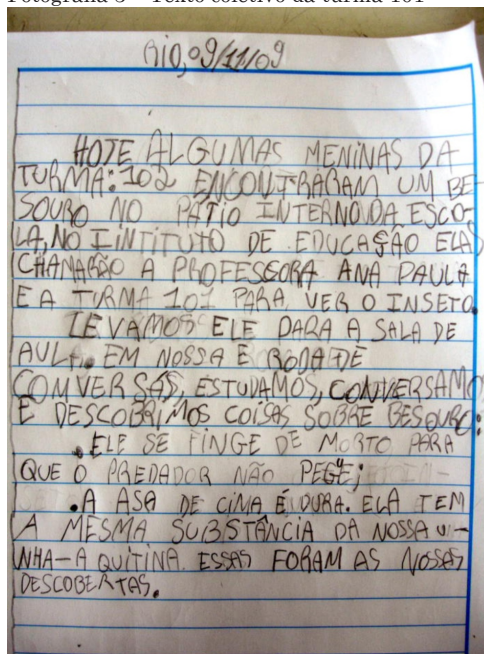 Fotografia 3 – Texto coletivo da turma 101
RIO, 09/11/09
HOJE ALGUMAS MENINAS DA
TURMA: 102 ENCONTRARAM UM BE-
SOURO NO PÁTIO INTERNO DA ESCO-
LA, NO INTITUTO DE EDUCAÇÃO ELAS
CHAMARÃO A PROFESSORA ANA PAULA
E A TURMA 101 PARA VER O INSETO.
LEVAMOS ELE PARA A SALA DE
AULA. EM NOSSA E RODA DE
COMVERSAS, ESTUDAMOS, CONVERSAMOS
E DESCOBRIMOS COISAS SOBRE BESOURO:
. ELE SE FINGE DE MORTO PARA
QUE O PREDADOR NÃO PEGE;
. A ASA DE CIMA É DURA. ELA TEM
A MESMA SUBSTÂNCIA DA NOSSA U-
NHA-A QUITINA. ESSAS FORAM AS NOSSAS
DESCOBERTAS.